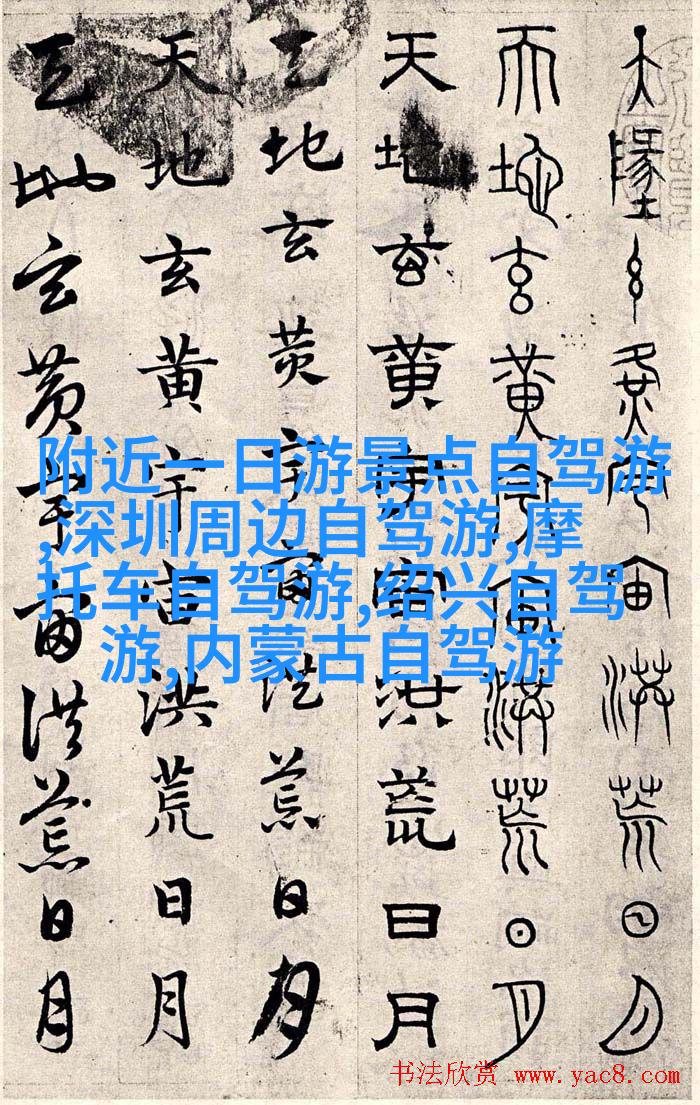 天地玄黄宇宙洪荒日月
天地玄黄宇宙洪荒日月
天地玄黄宇宙洪荒日月
天地玄黄宇宙洪荒日月
天地玄黄宇宙洪荒日月
天地玄黄宇宙洪荒日月
附近一日游景点自驾游
,深圳周边自驾游,摩
托车自驾游,绍兴自驾
游,内蒙古自驾游
书法欣赏 www.yac8.com